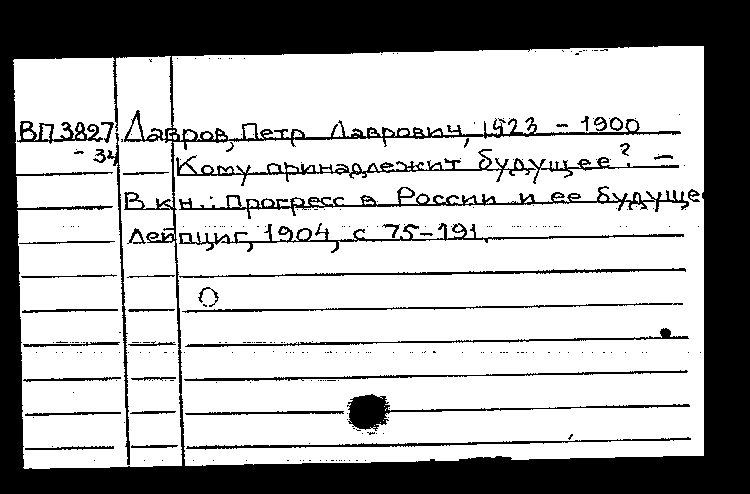 ВП3827 Лавров, Петр Лаврович, 1923 - 1900
- 34 Кому принадлежит будущее? -
В кн.: Прогресс в России и ее будуще
Лейпциг, 1904, с 75-191.